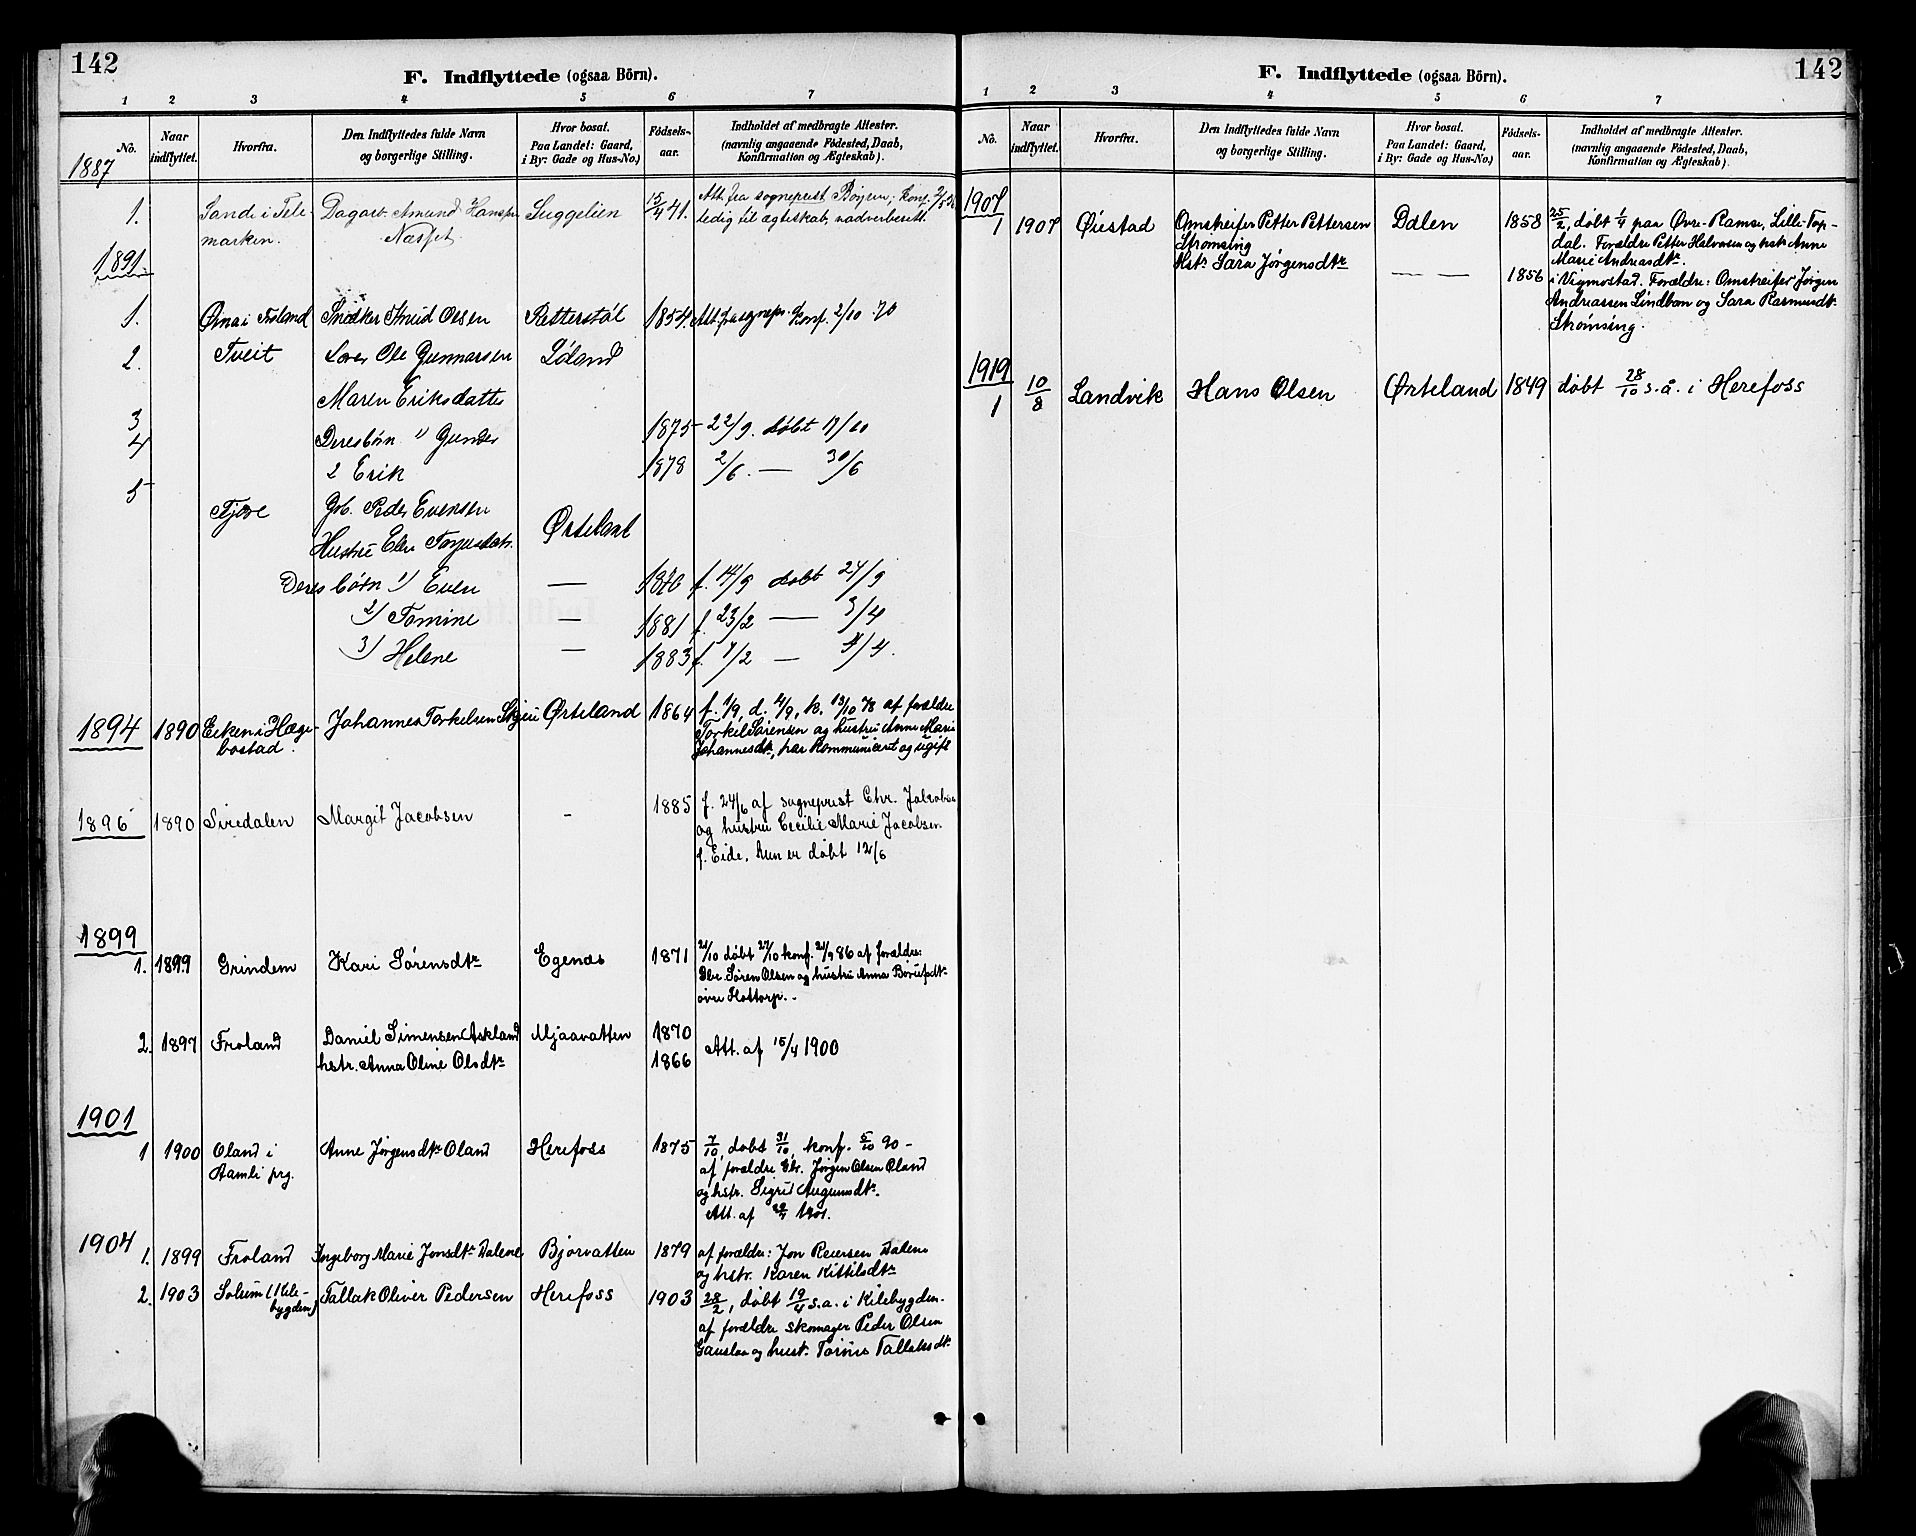 142
F. Indflyttede (ogsaa Börn).
1 2 3 4 5 6 7
No. Naar indflyttet. Hvorfra. Den Indflyttedes fulde Navn og borgerlige Stilling. Hvor bosat. Paa Landet: Gaard, i By: Gade og Hus-No.) Födsels-aar. Indholdet af medbragte Attester. (navnlig angaaende Födested, Daab, Konfirmation og Ægteskab).
1887
1. Sande i Tele- Dagarb. Amund Hanspr. Suggelien 15/4 41. Att. fra sogneprest Böyem; konf.
marken. Næsset ledig til ægteskab, nadverberett.
1891
1. Øma i Froland Snedker Knud Olsen Retterstøl 1854. Att. fra sognepr. Konf. 2/10 70
2. Tveit Ole Gunnarsen Løland
Maren Eriksdatter
3 Deres børn 1) Gunder 1875 22/9. døbt 17/10
4 2 Erik 1878 2/6. — 30/6
5 Tjøse Gb. Peder Evensen
Hustru Elen Torjusdatr. Ørteland
Deres børn 1) Even — f. 14/9 døbt 24/9
2) Tomine — 1881 f. 23/2 — 3/4
3) Helene — 1883 f. 7/2 — 4/4.
1894 1890 Eiken i Hæge- Johannes Torkelsen Skjeu Ørteland 1864 f. 1/9, d. 4/9, k. 13/10 78 af forældre
bostad. Torkel Sørensen og hustru Anne Marie
Johannesdtr, har kommuniceret og ugift
1896 1890 Siredalen Margit Jacobsen - 1885 f. 24/6 af sogneprest Chr. Jacobsen
og hustru Cecilie Marie Jacobsen
f. Eide. Hun er døbt 12/6
1899
1. 1899 Grindem Kari Sørensdtr Egenæs 1871 21/10 døbt 27/10 konf. 21/9 86 af forældre:
Gbr. Søren Olsen og hustru Anna
øvre
2. 1897 Froland Daniel Simensen Askland Mjaavatten 1870
hstr. Anna Oline Olsdtr 1866 Att. af 15/4 1900
1901
1 1900 Oland i Anne Jørgensdtr Oland Herefoss 1875 7/10, døbt 31/10, konf. 5/10 90 -
Aamli prg. af forældre Gbr. Jørgen Olsen Oland
og hstr. Sigrid Augunsdtr.
Att. af 1901.
1904
1. 1899 Froland Ingeborg Marie Jonsdtr Dalene Bjorvatten 1879 af forældre: Jon Reiersen Dalene
og hstr. Karen Kittilsdtr
2. 1903 Solum (Kile- Tallak Oliver Pedersen Herefoss 1903 28/2, døbt 19/4 s.a. i Kilebygden.
bygden) af forældre skomager Peder Olsen
Gauslaa og hust. Tallaksdtr
142
F. Indflyttede (ogsaa Börn).
1 2 3 4 5 6 7
No. Naar indflyttet. Hvorfra. Den Indflyttedes fulde Navn og borgerlige Stilling. Hvor bosat. Paa Landet: Gaard, i By: Gade og Hus-No.) Födsels-aar. Indholdet af medbragte Attester. (navnlig angaaende Födested, Daab, Konfirmation og Ægteskab).
1907
1 1907 Øiestad Omstreifer Petter Pettersen Dalen 1858 25/2, døbt 1/4 paa Øvre-Ramse, Lille-Top-
Strømsing dal. Forældre Petter Halvorsen og hstr Anne
Marie Andreasdtr
Hstr Sara Jørgensdtr — — 1856 i Vigmostad. Forældre: Omstreifer Jørgen
Andreassen Lindbom og Sara Rasmusdtr
Strømsing.
1919
1 10/8 Landvik Hans Olsen Ørteland 1849 døbt 28/10 s.å. i Herefoss